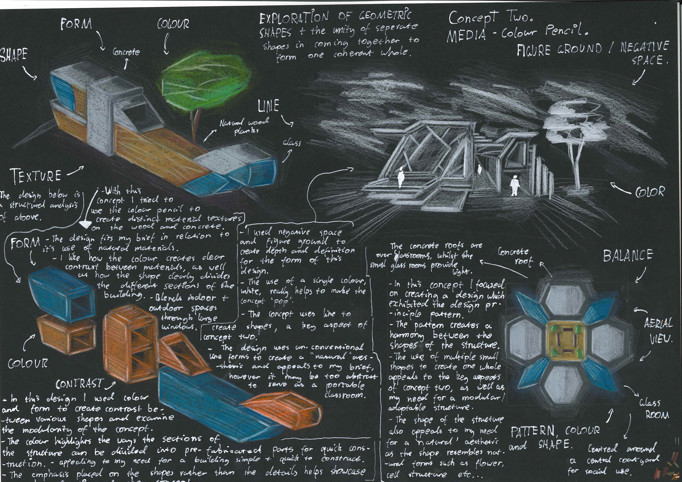 FORM
COLOUR
SHAPE
Concrete
EXPLORATION OF GEOMETRIC
SHAPES + the unity of seperate
shapes in coming together to
form one coherent whole.
Concept Two.
MEDIA - Colour Pencil.
FIGURE GROUND / NEGATIVE
SPACE.
LINE
Natural wood
planter
Glass
COLOR
TEXTURE
The design below is
a structured analysis
of above.
- With this
concept I tried to
use the colour pencil to
create distinct material textures
on the wood and concrete.
- The design fits my brief in relation to
it's use of natural materials.
- I like how the colour creates clear
contrast between materials, as well
as how the shape clearly divides
the different sections of the
building.
- Blends indoor +
outdoor spaces
through large
windows.
FORM
COLOUR
CONTRAST
- I used negative space
and figure ground to
create depth and definition
for the form of this
design.
- The use of a single colour,
white, really helps to make the
concept 'pop'.
- The concept uses line to
create shapes, a key aspect of
concept two.
The design uses un-conventional
line forms to create a 'natural' aes-
thetic and appeals to my brief,
however it may be too abstract
to serve as a portable
classroom.
- In this design I used colour
and form to create contrast be-
tween various shapes and examine
the modularity of the concept.
- The colour highlights the ways the sections of
the structure can be divided into pre-fabricated parts for quick cons-
truction. - appealing to my need for a building simple + quick to construct.
- The emphasis placed on the shapes rather than the details helps showcase
The concrete roofs are
over classrooms, whilst the
small glass rooms provide
light.
Concrete
roof
- In this concept I focused
on creating a design which
exhibited the design pr-
inciple pattern.
- The pattern creates a
harmony between the
shapes of the structure.
- The use of multiple small
shapes to create one whole
appeals to the key aspects
of concept two, as well as
my need for a modular/
adaptable structure.
- The shape of the structure
also appeals to my need
for a 'natural' aesthetic
as the shape resembles nat-
ural forms such as flower,
cell structure etc...
BALANCE
AERIAL
VIEW.
Glass
ROOM
PATTERN, COLOUR
AND SHAPE.
Centred around
a central courtyard
for social use.